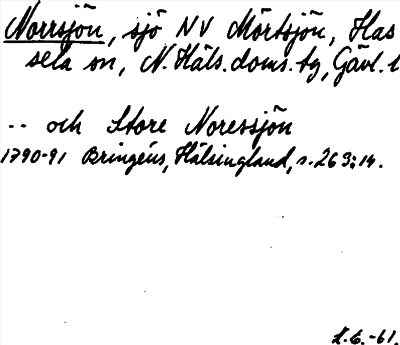 Norrsjön, sjö NV Mörtsjön, Has
sela sn, N. Häls. doms. tg, Gävl. l
-- och Store Noressjön
1790-91 Bringéus, Hälsingland, s. 263; 14.
L.E. -61.